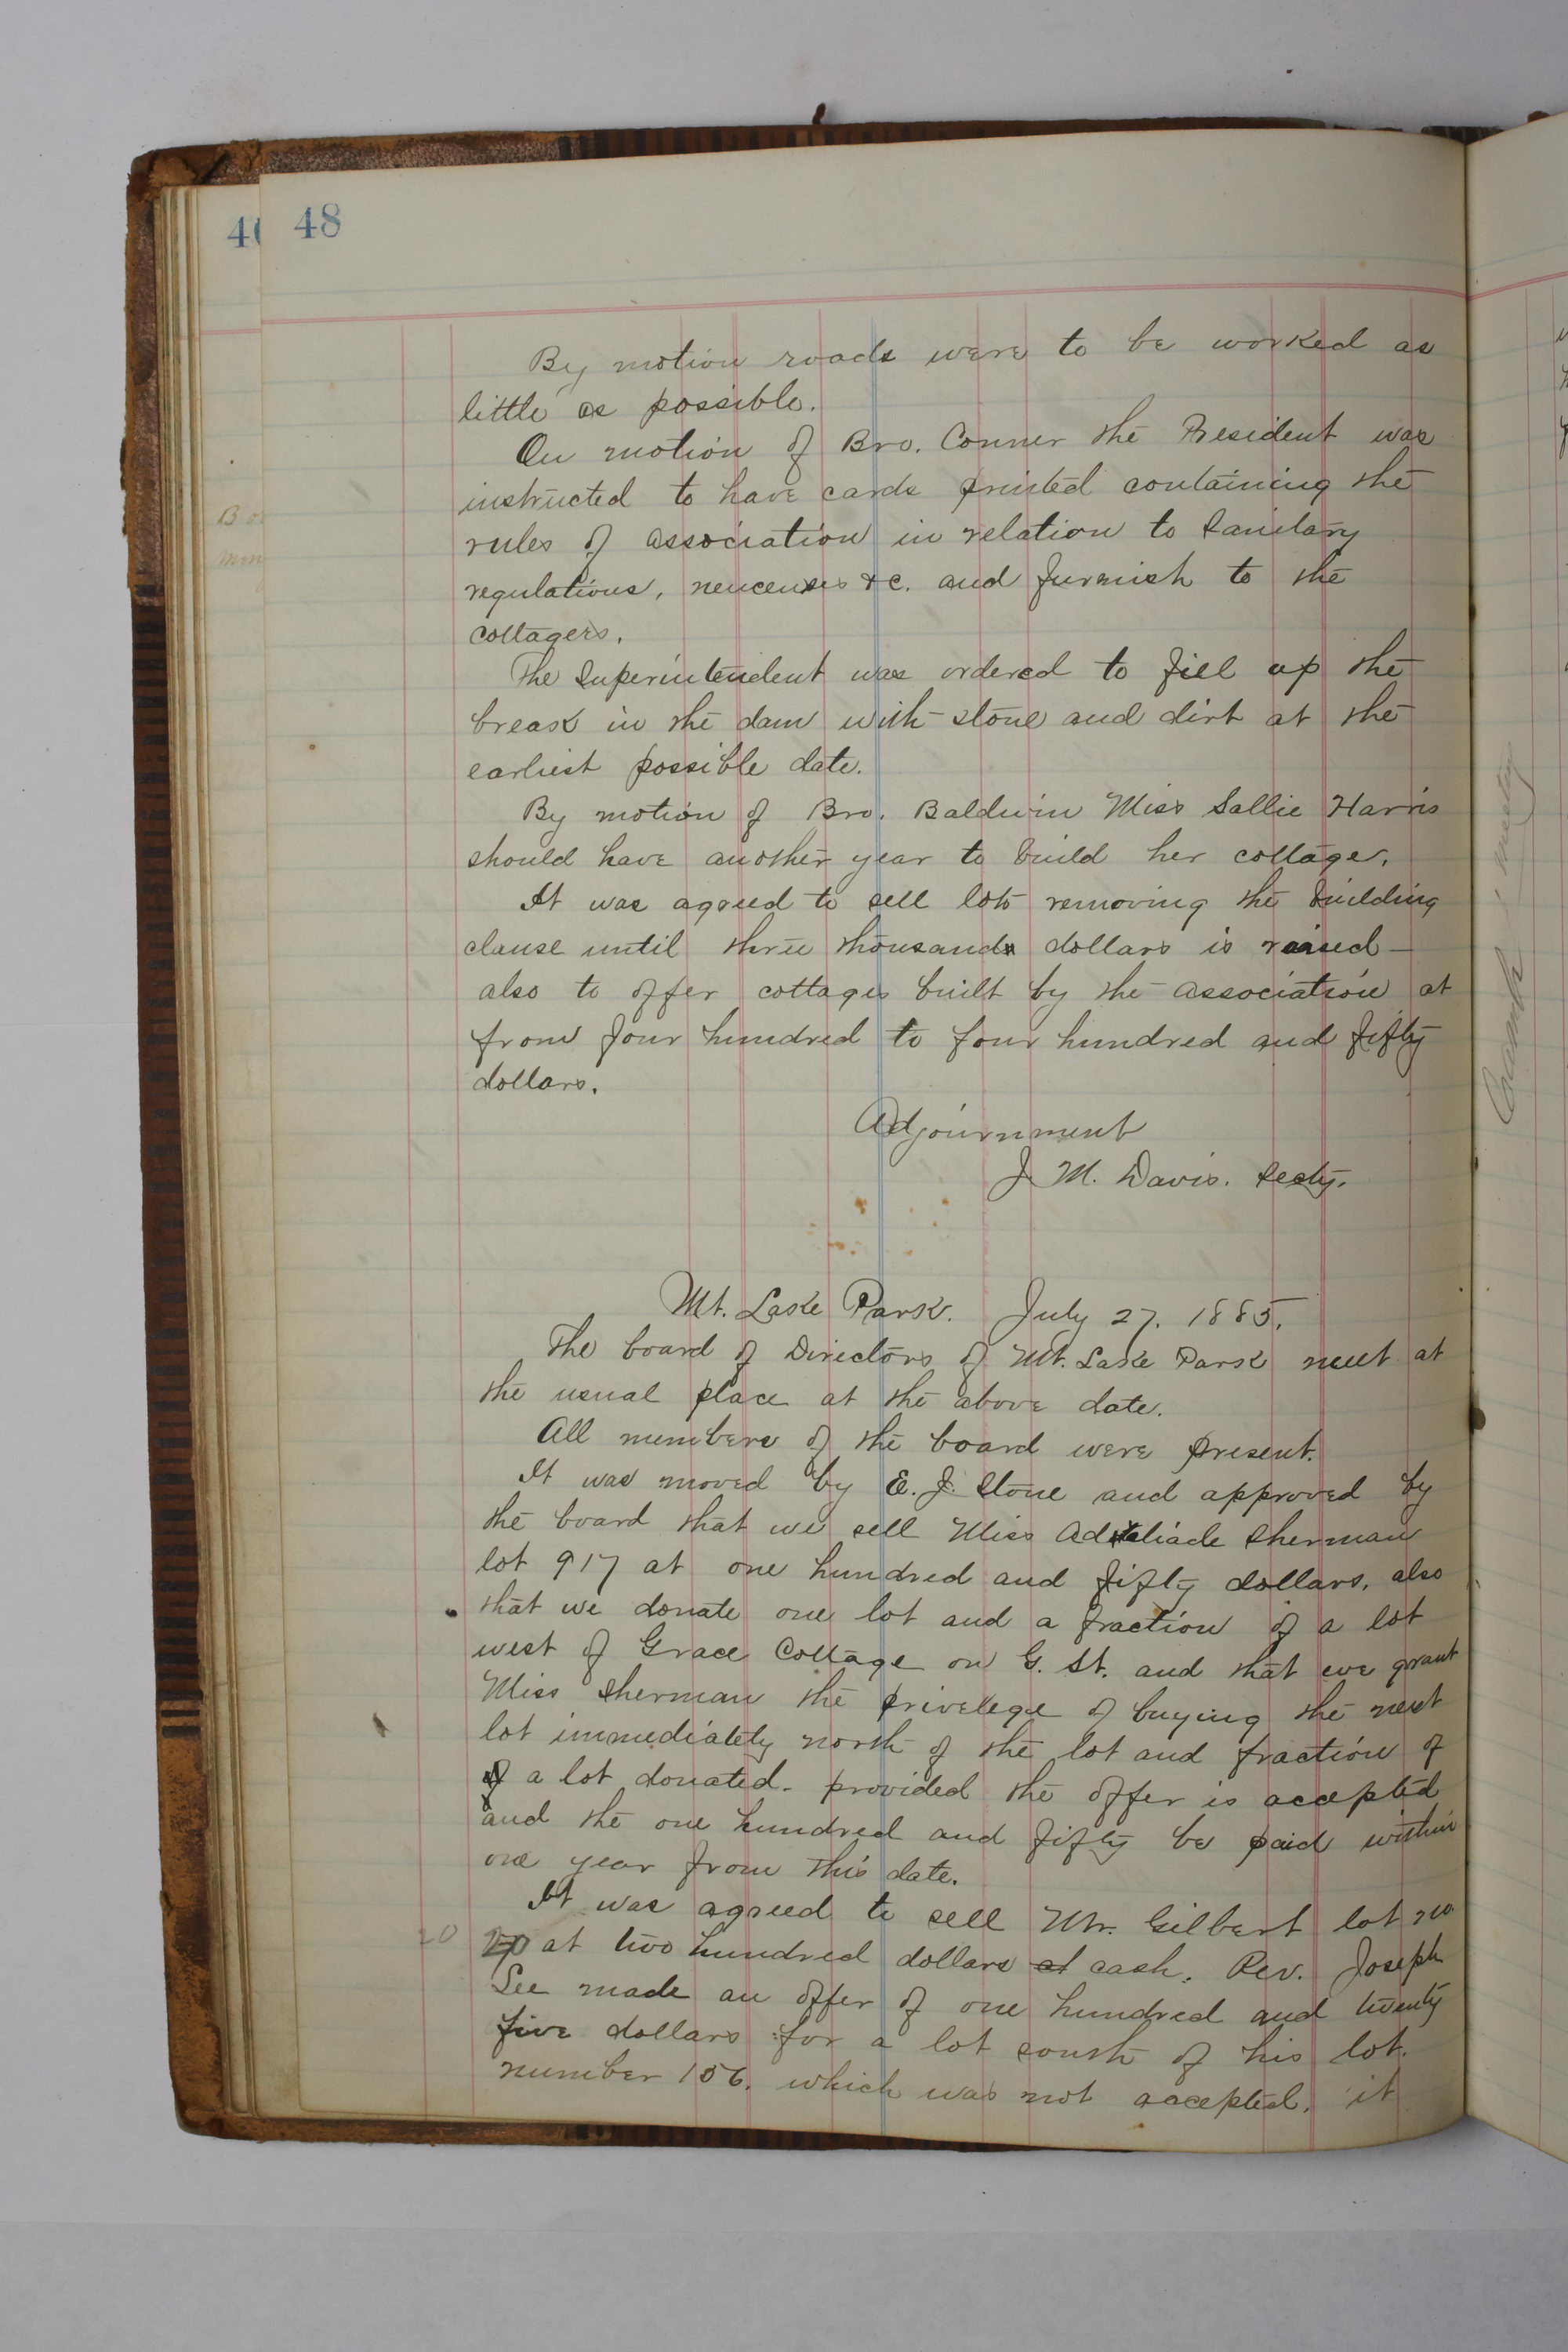 48
By motion roads were to be worked as
little as possible.
On motion of Bro. Conner the President was
instructed to have cards printed containing the
rules of association in relation to Sanitary
regulations, &c. and furnish to the
cottagers.
The Superintendent was ordered to fill up the
break in the dam with stone and dirt at the
earliest possible date.
By motion of Bro. Baldwin Miss Sallie Harris
should have another year to build her cottage.
It was agreed to sell lots removing the building
clause until three thousand dollars is raised—
also to offer cottages built by the association at
from four hundred to four hundred and fifty
dollars.
Adjournment
J. M. Davis. Secty.
Mt. Lake Park. July 27. 1885.
The board of Directors of Mt. Lake Park meet at
the usual place at the above date.
All members of the board were present.
It was moved by E. J. Stone and approved by
the board that we sell Miss Sherman
lot 917 at one hundred and fifty dollars, also
that we donate one lot and a fraction of a lot
west of Grace Cottage on G. St. and that we grant
Miss Sherman the privelege of buying the next
lot immediately north of the lot and fraction of
of a lot donated. provided the offer is accepted
and the one hundred and fifty be paid within
one year from this date.
It was agreed to sell Mr. Gilbert lot no
20 at two hundred dollars at cash. Rev. Joseph
Lee made an offer of one hundred and twenty
five dollars for a lot south of his lot.
number 156. which was not accepted. it